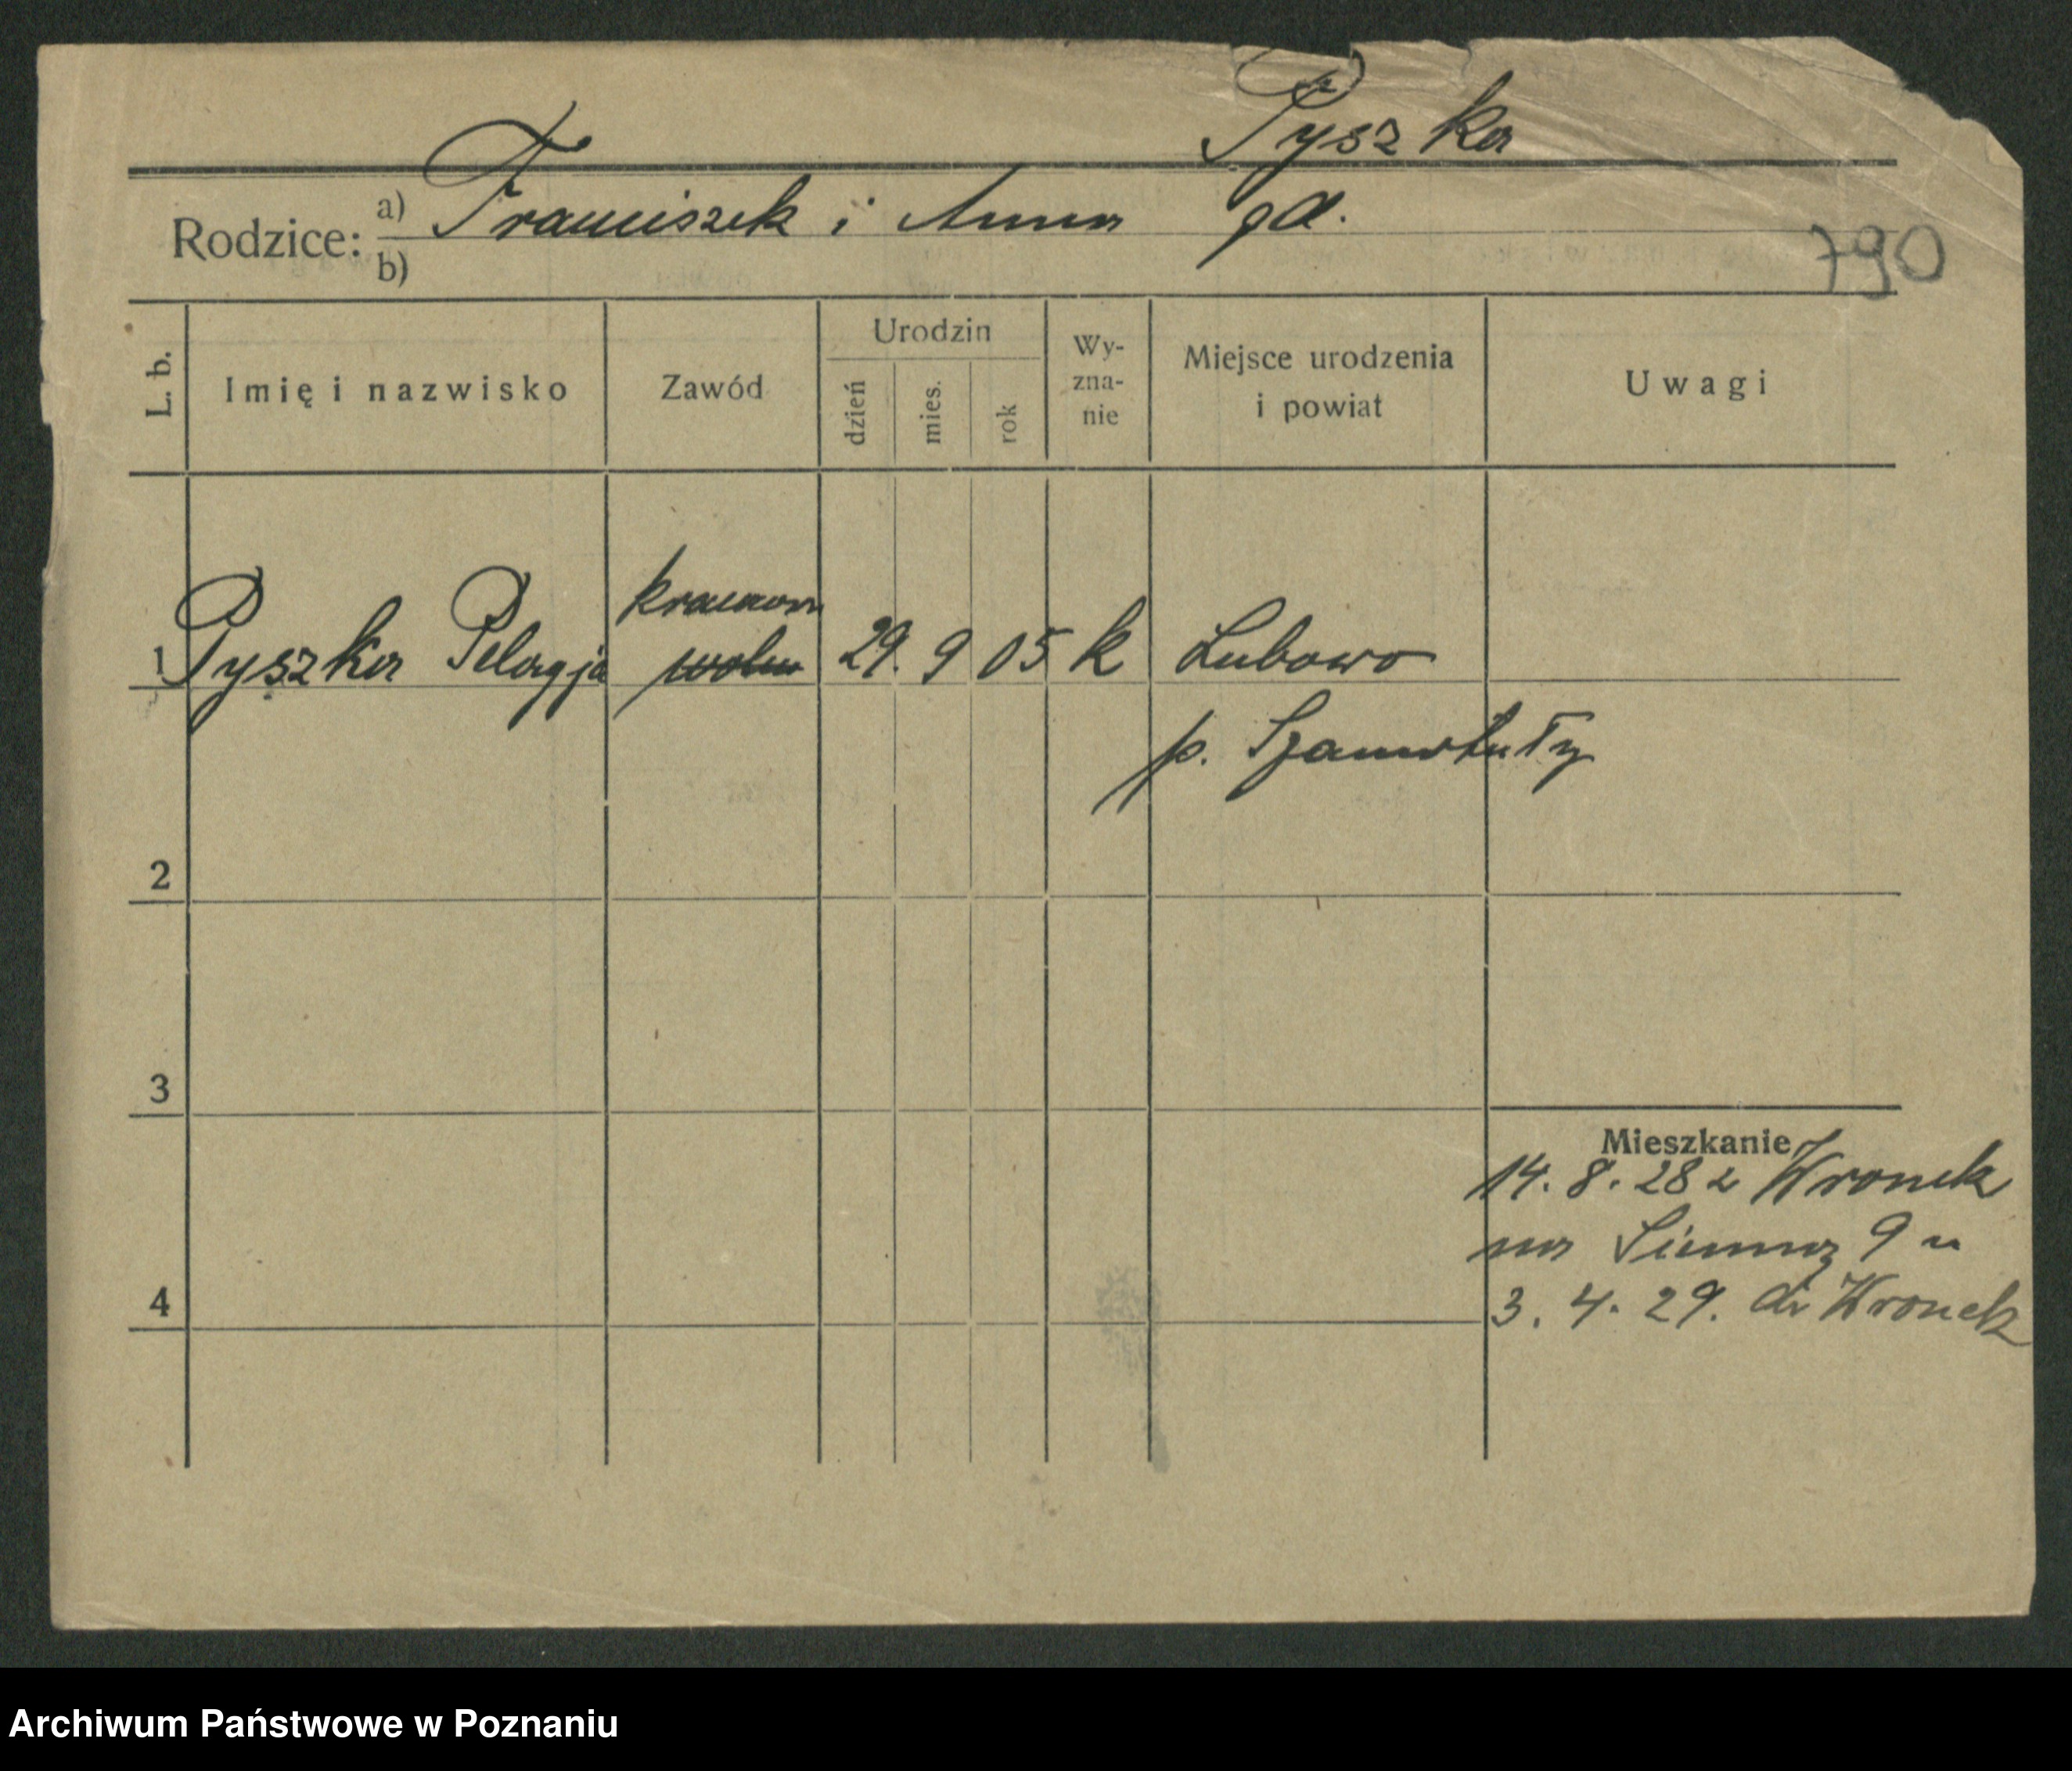 Pyszka
Rodzice: a) Franciszek i Anna gd.
b)
790
L. b. Imię i nazwisko Zawód Urodzin dzień mies. rok Wy-zna-nie Miejsce urodzenia i powiat Uwagi
1 Pyszka Pelagja 29. 9 05 k Lubowo
p. Szamotuły
2
3
Mieszkanie
14. 8. 28 z Wronek
na Sienną 9
4
3. 4. 29. do Wronek
Archiwum Państwowe w Poznaniu